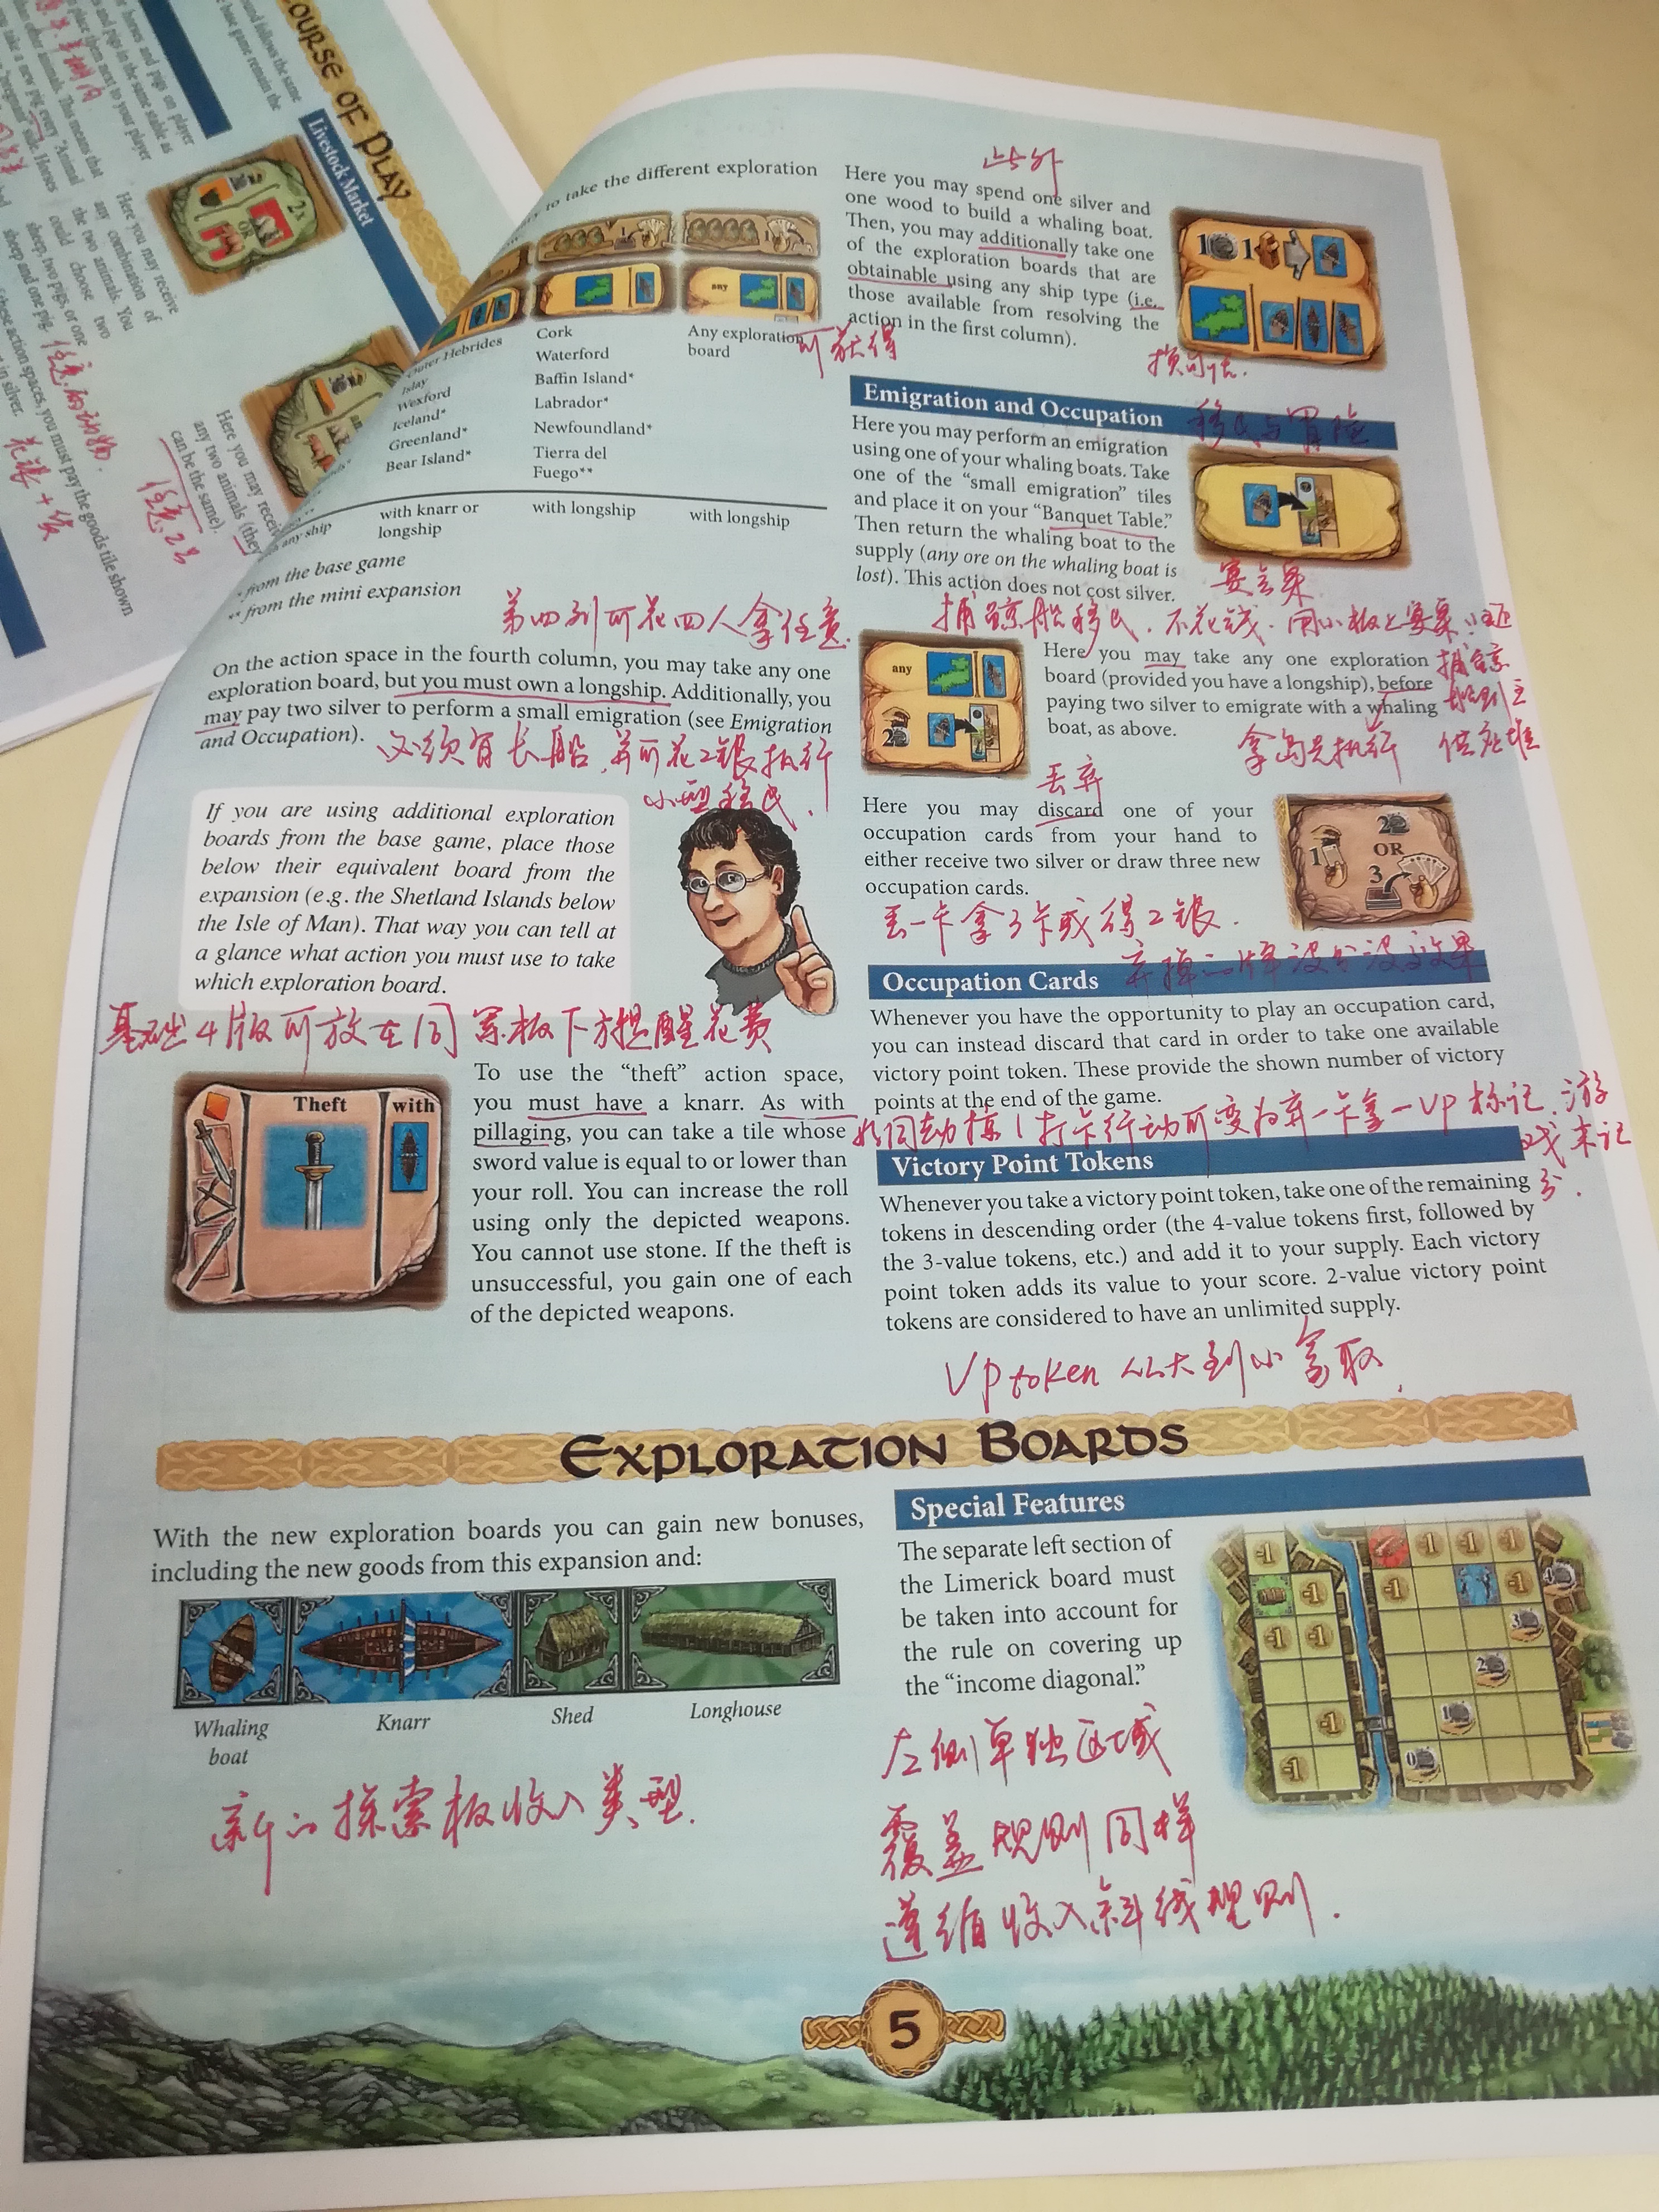 COURSE OF PLAY
Livestock Market
Here you may receive
any combination of
the two animals. You
could choose two
sheep, two pigs, or one
sheep and one pig.
these action spaces, you must pay the goods tile shown
in silver.
任意
Here you may receive
any two animals (they
can be the same).
任意2
to take the different exploration
any
Outer Hebrides
Islay
Wexford
Iceland*
Greenland*
Bear Island*
Cork
Waterford
Baffin Island*
Labrador*
Newfoundland*
Tierra del
Fuego**
Any exploration
board
any ship
with knarr or
longship
with longship
with longship
*from the base game
** from the mini expansion
第四列可花四人拿任意.
On the action space in the fourth column, you may take any one
exploration board, but you must own a longship. Additionally, you
may pay two silver to perform a small emigration (see Emigration
and Occupation).
必须有长船,并可花2银执行
小型移民.
If you are using additional exploration
boards from the base game, place those
below their equivalent board from the
expansion (e.g. the Shetland Islands below
the Isle of Man). That way you can tell at
a glance what action you must use to take
which exploration board.
基础4版可放在同系板下方提醒花费
Theft
with
To use the “theft” action space,
you must have a knarr. As with
pillaging, you can take a tile whose
sword value is equal to or lower than
your roll. You can increase the roll
using only the depicted weapons.
You cannot use stone. If the theft is
unsuccessful, you gain one of each
of the depicted weapons.
此外
Here you may spend one silver and
one wood to build a whaling boat.
Then, you may additionally take one
of the exploration boards that are
obtainable using any ship type (i.e.
those available from resolving the
action in the first column).
可获得
1 1
换句话.
Emigration and Occupation
移民与冒险
Here you may perform an emigration
using one of your whaling boats. Take
one of the “small emigration” tiles
and place it on your “Banquet Table.”
Then return the whaling boat to the
supply (any ore on the whaling boat is
lost). This action does not cost silver.
宴会桌
捕鲸船移民.不花钱.用小板上宴桌
any
2
Here you may take any one exploration
board (provided you have a longship), before
paying two silver to emigrate with a whaling
boat, as above.
捕鲸
拿岛先执行
供应堆
丢弃
Here you may discard one of your
occupation cards from your hand to
either receive two silver or draw three new
occupation cards.
1
2
OR
3
丢一卡拿3卡或得2银.
Occupation Cards
弃掉的牌没分没效果
Whenever you have the opportunity to play an occupation card,
you can instead discard that card in order to take one available
victory point token. These provide the shown number of victory
points at the end of the game.
打卡行动可变为弃一卡拿一VP标记.游
戏末记
分.
Victory Point Tokens
Whenever you take a victory point token, take one of the remaining
tokens in descending order (the 4-value tokens first, followed by
the 3-value tokens, etc.) and add it to your supply. Each victory
point token adds its value to your score. 2-value victory point
tokens are considered to have an unlimited supply.
VP token 从大到小拿取.
EXPLORATION BOARDS
With the new exploration boards you can gain new bonuses,
including the new goods from this expansion and:
Whaling
boat
Knarr
Shed
Longhouse
新的探索板收入类型.
Special Features
The separate left section of
the Limerick board must
be taken into account for
the rule on covering up
the “income diagonal.”
-1 -1 -1 -1
-1 -1 -1 4
-1 -1 3
2
-1 1
-1 0
左侧单独区域
覆盖规则同样
遵循收入斜线规则.
5